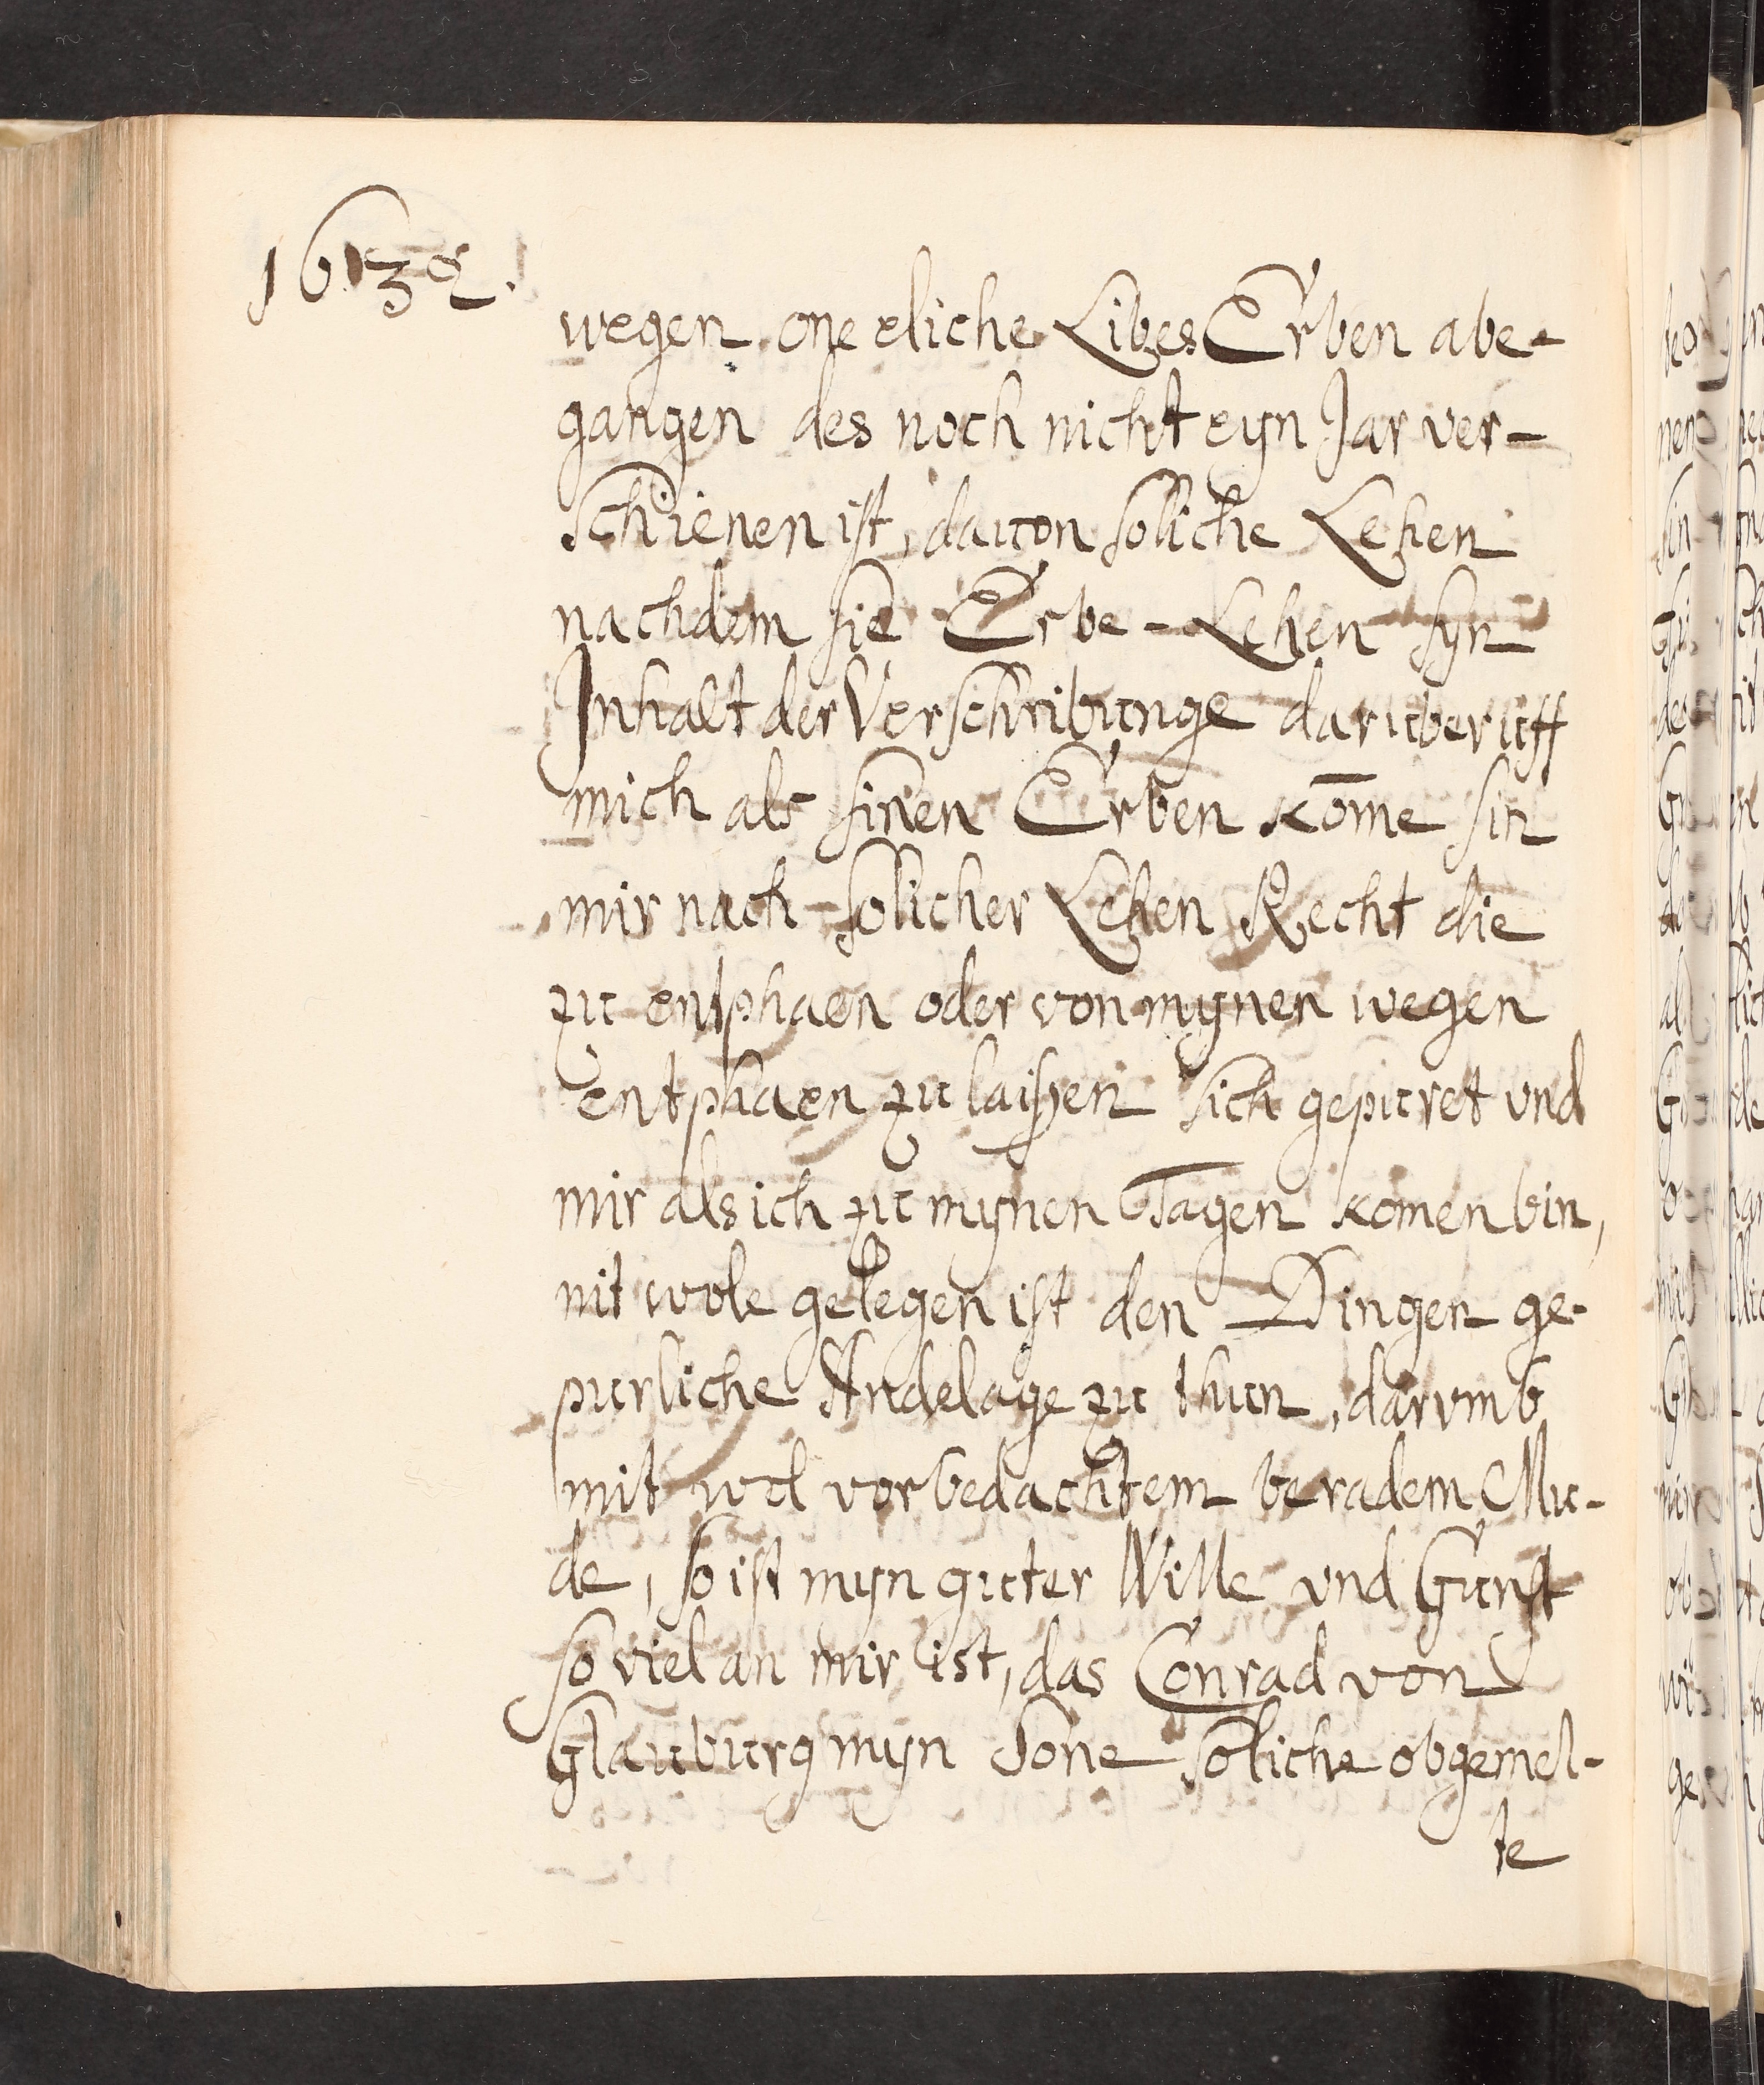 wegen one eliche Libes Erben abe-
gangen des noch nicht eyn Jar ver-
schienen ist, dauon soliche Lehen
nachdem sie Erbe-Lehen syn
Inhalt der Verschribunge daruber uff
mich als sinen Erben kōme sin
mir nach solicher Lehen Recht die
zu entphaen oder von mynen wegen
entphaen zu laißen sich gepuret vnd
mir als ich zu mynen Tagen komen bin,
nit wole gelegen ist den Dingen ge-
purliche Andelage zu thun, darvmb
mit wol vorbedachtem beradem Mu-
de, so ist myn guter Wille vnd Gunst
so viel an mir ist, das Conrad von
Glauburg myn Sone soliche obgemel-
te